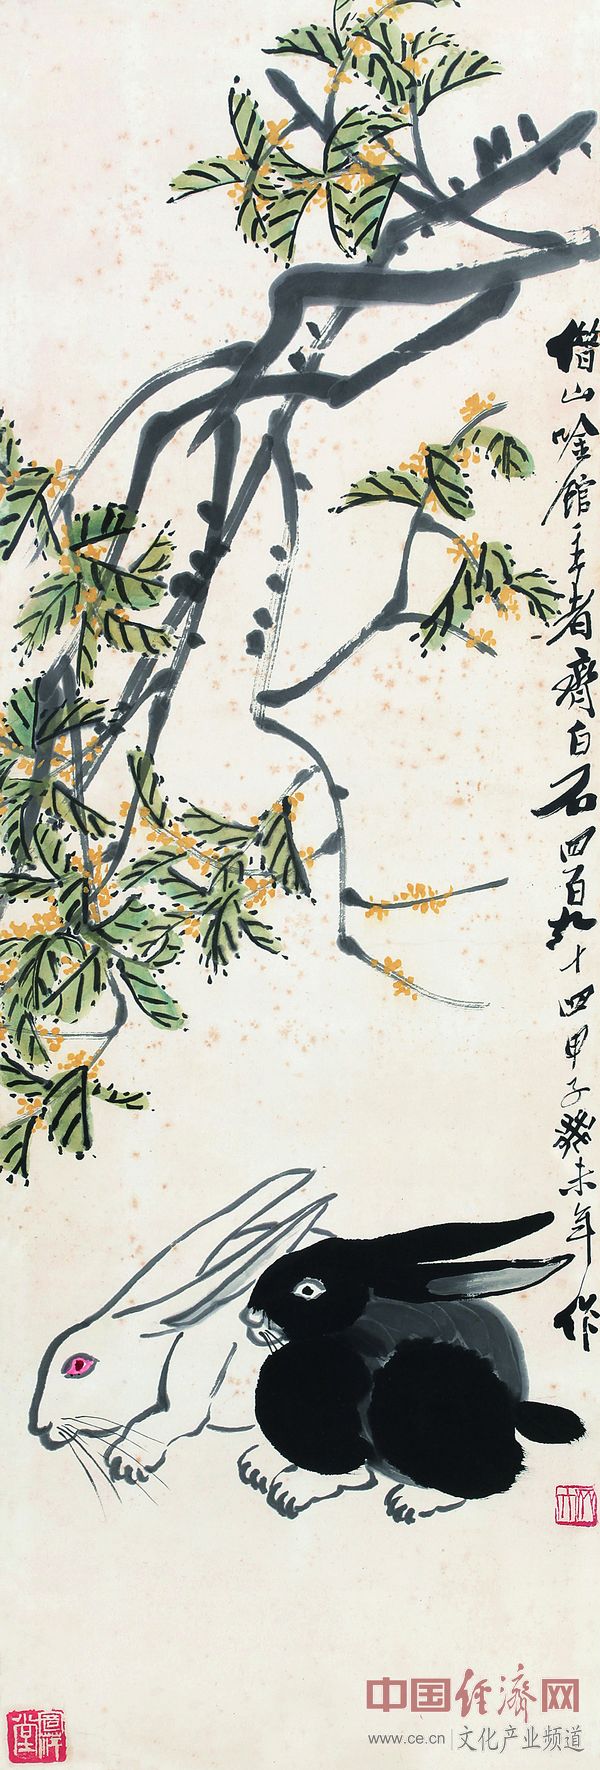 借山唫館主者齊白石四百九十四甲子癸未年作
中国經濟网
www.ce.cn | 文化产业频道